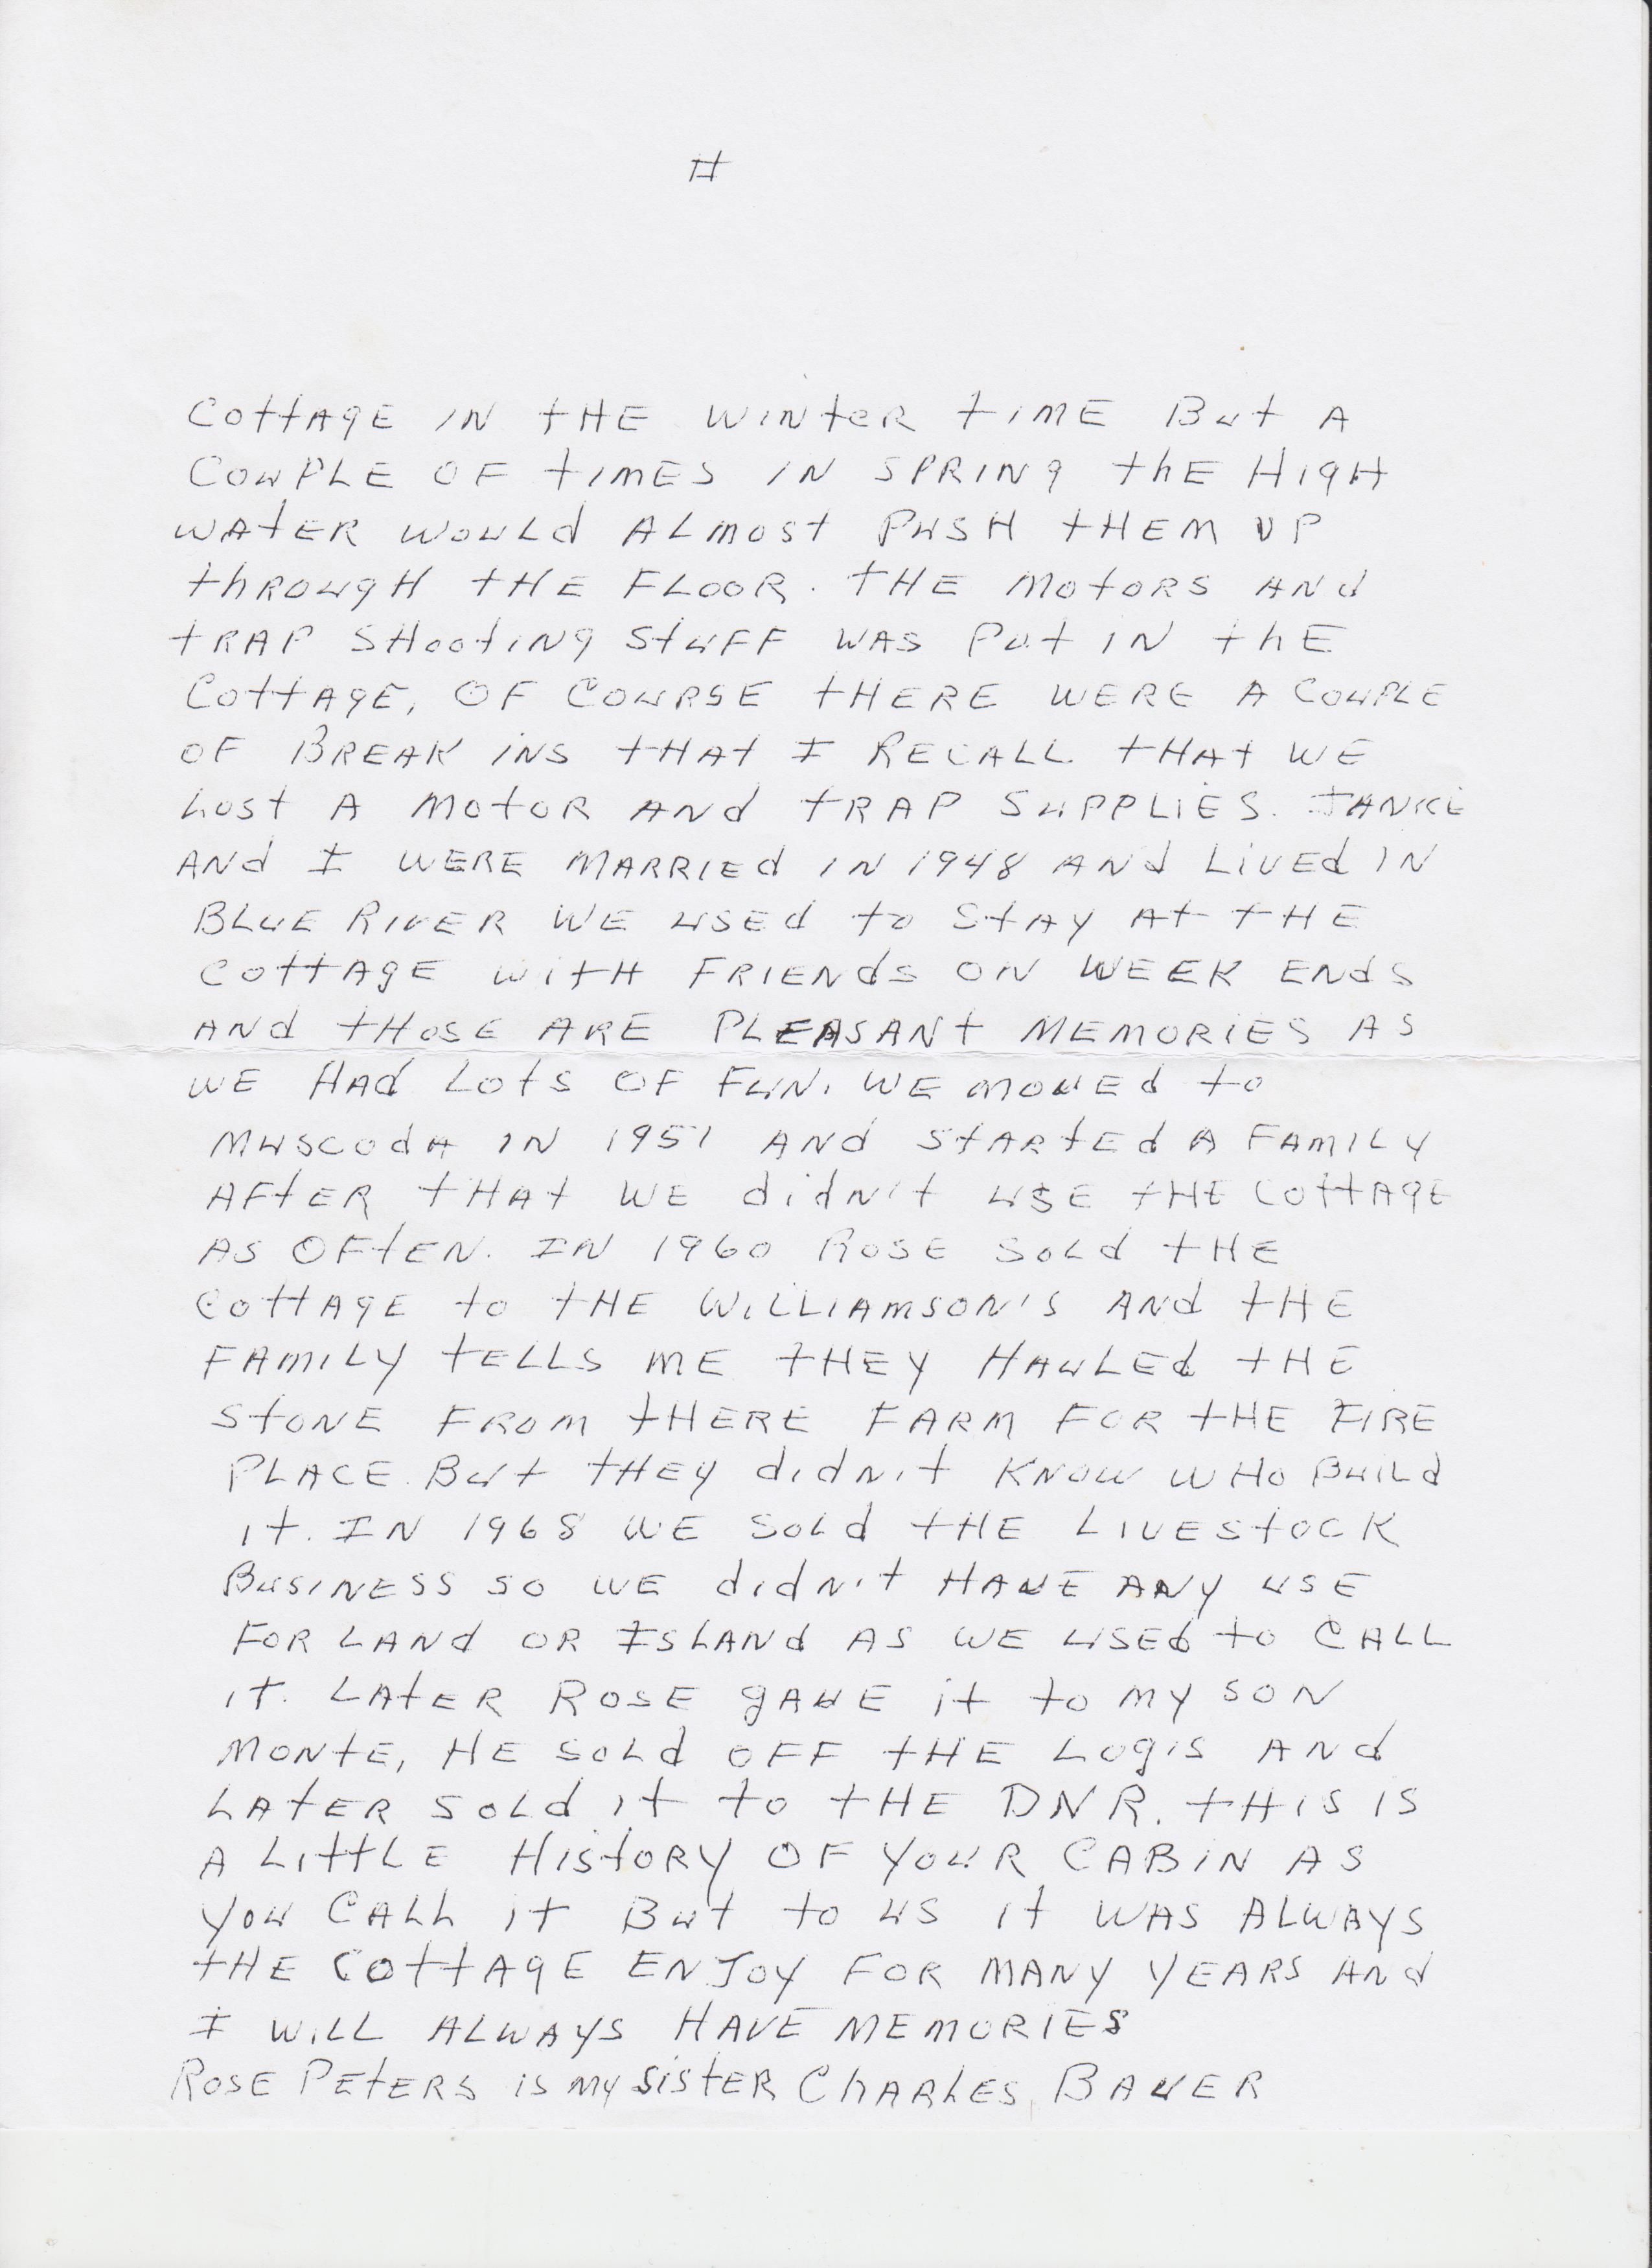 II
COTTAGE IN THE WINTER TIME BUT A
COUPLE OF TIMES IN SPRING THE HIGH
WATER WOULD ALMOST PUSH THEM UP
THROUGH THE FLOOR. THE MOTORS AND
TRAP SHOOTING STUFF WAS PUT IN THE
COTTAGE, OF COURSE THERE WERE A COUPLE
OF BREAK INS THAT I RECALL THAT WE
LOST A MOTOR AND TRAP SUPPLIES.
AND I WERE MARRIED IN 1948 AND LIVED IN
BLUE RIVER WE USED TO STAY AT THE
COTTAGE WITH FRIENDS ON WEEK ENDS
AND THOSE ARE PLEASANT MEMORIES AS
WE HAD LOTS OF FUN. WE MOVED TO
MUSCODA IN 1951 AND STARTED A FAMILY
AFTER THAT WE DIDN'T USE THE COTTAGE
AS OFTEN. IN 1960 ROSE SOLD THE
COTTAGE TO THE WILLIAMSON'S AND THE
FAMILY TELLS ME THEY HAULED THE
STONE FROM THERE FARM FOR THE FIRE
PLACE. BUT THEY DIDN'T KNOW WHO BUILD
IT. IN 1968 WE SOLD THE LIVESTOCK
BUSINESS SO WE DIDN'T HAVE ANY USE
FOR LAND OR ISLAND AS WE USED TO CALL
IT. LATER ROSE GAVE IT TO MY SON
MONTE, HE SOLD OFF THE LOG'S AND
LATER SOLD IT TO THE DNR. THIS IS
A LITTLE HISTORY OF YOUR CABIN AS
YOU CALL IT BUT TO US IT WAS ALWAYS
THE COTTAGE ENJOY FOR MANY YEARS AND
I WILL ALWAYS HAVE MEMORIES
ROSE PETERS IS MY SISTER CHARLES BAUER